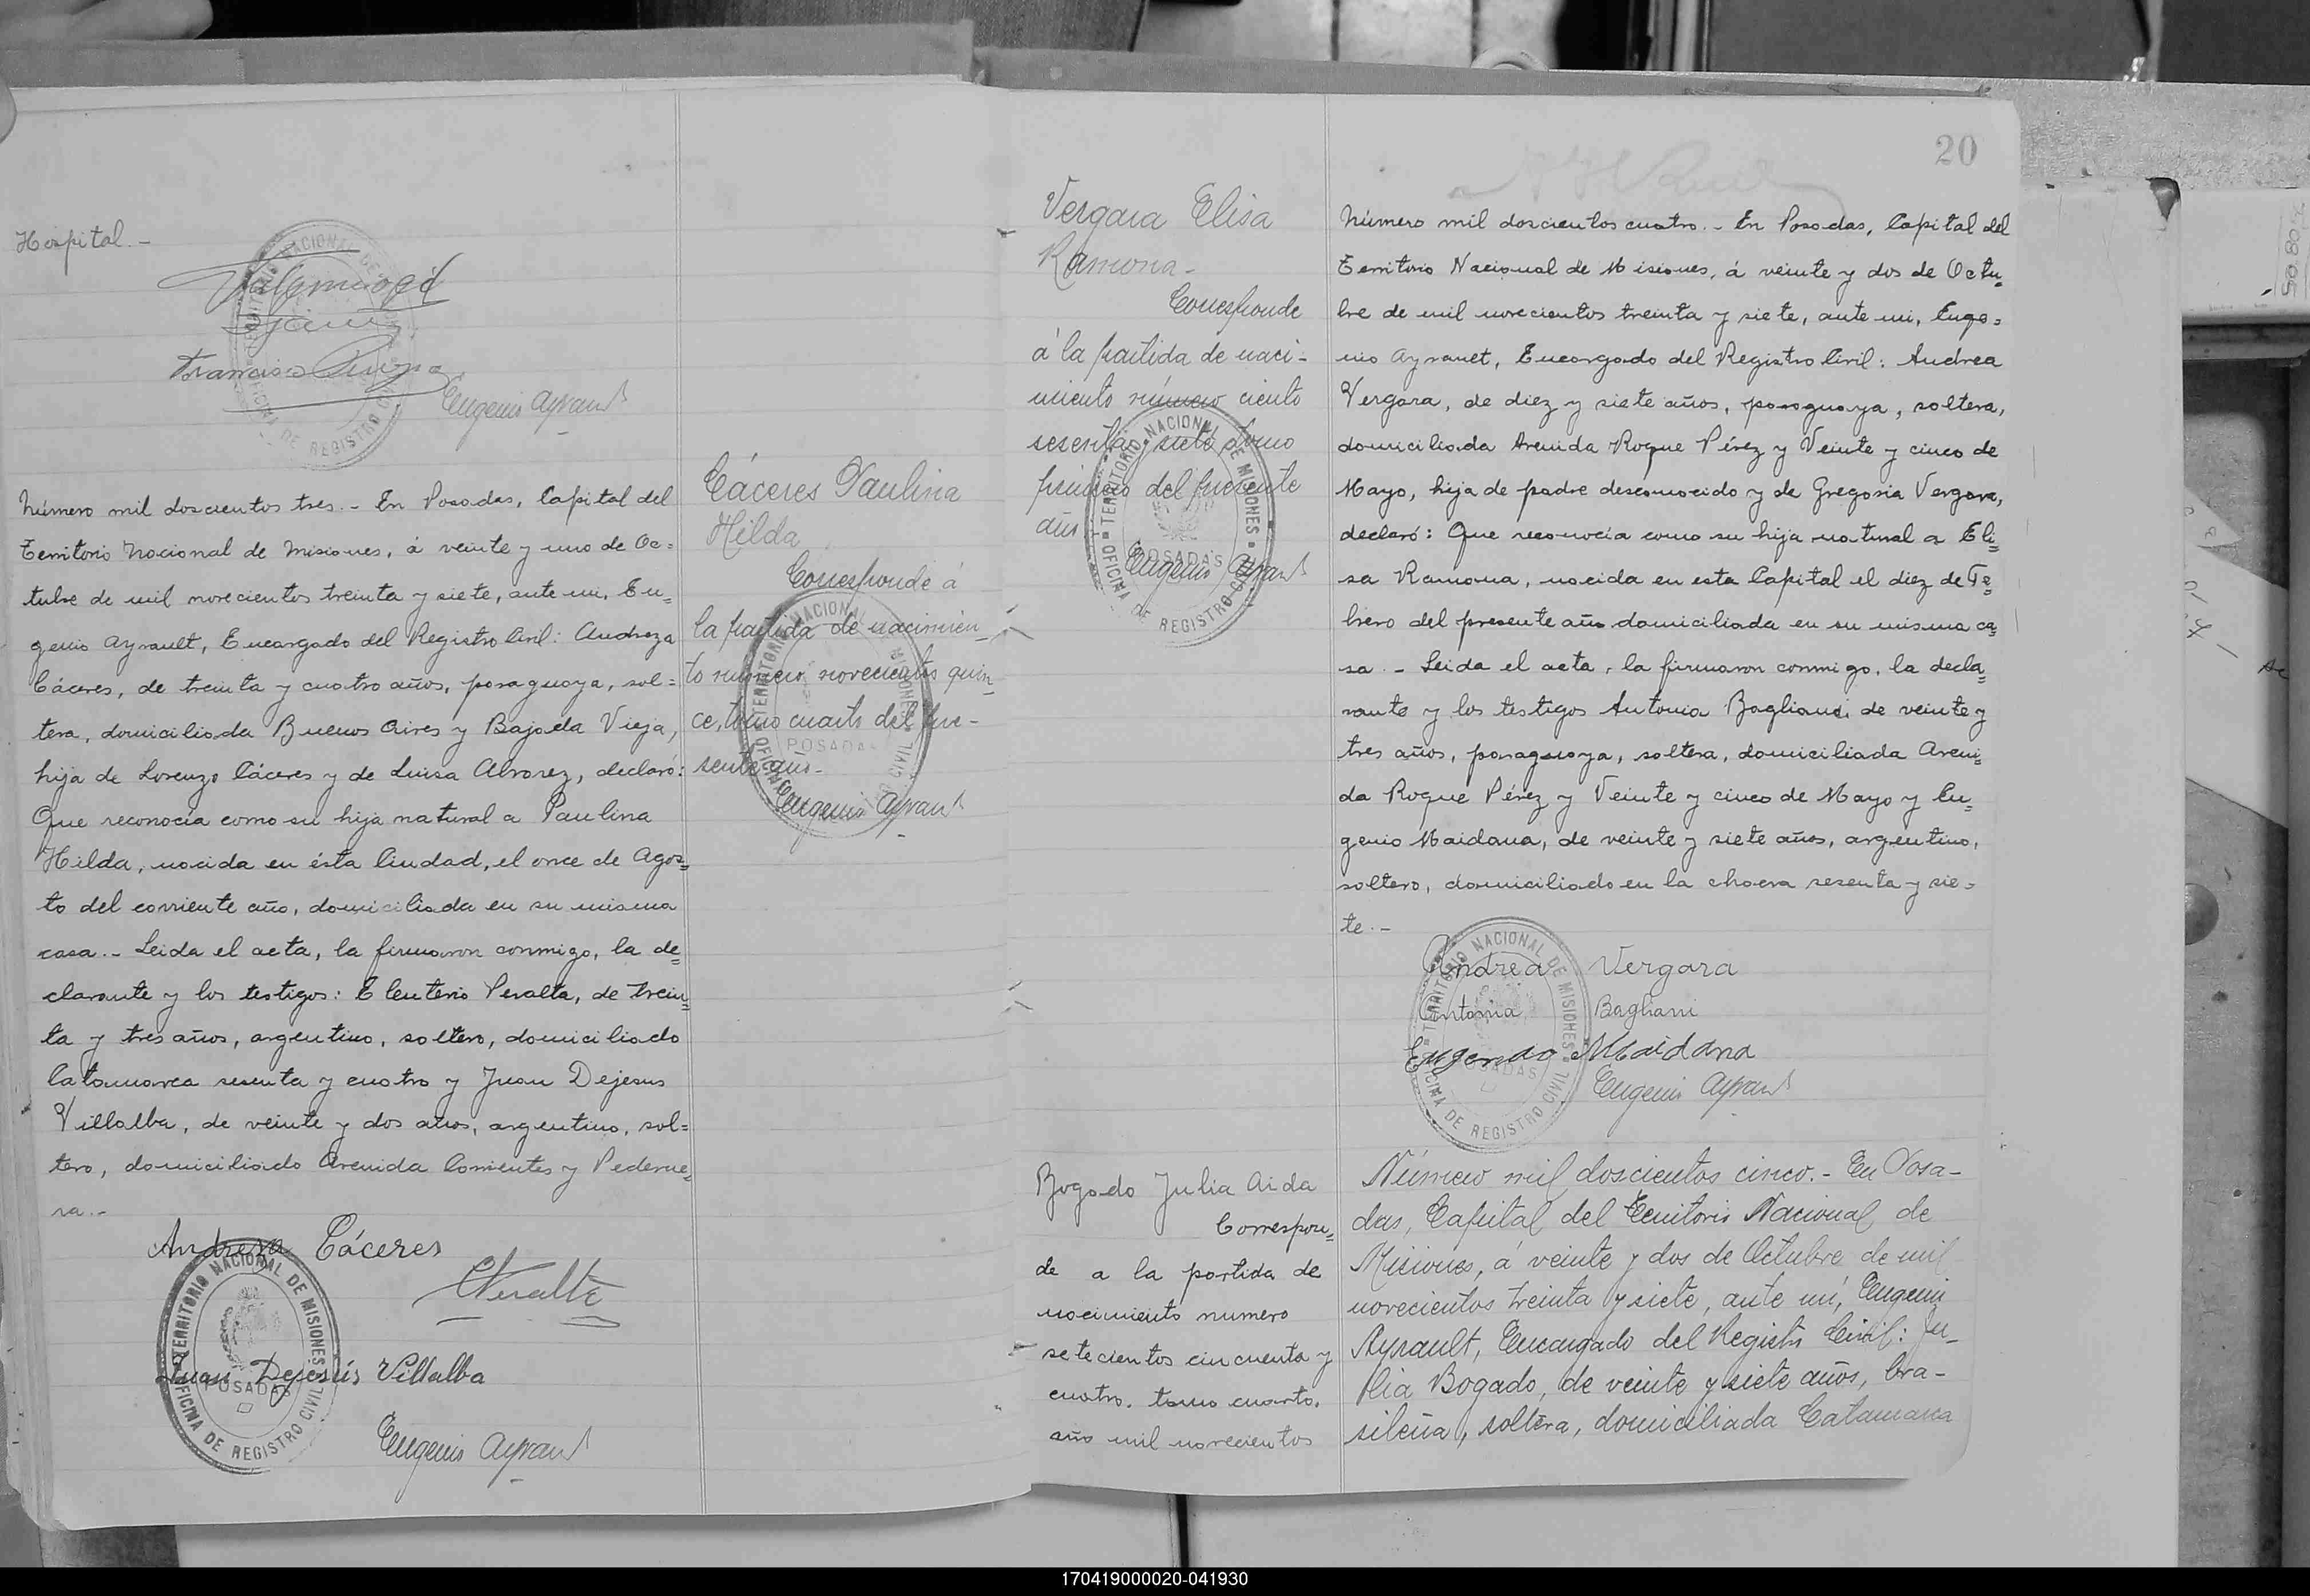 Hospital.-
Francisco
Eugenio Ayrault
Número mil doscientos tres.- En Posadas, Capital del
Territorio Nacional de Misiones, á veinte y uno de Oc=
tubre de mil novecientos treinta y siete, ante mi, Eu=
genio Ayrault, Encargado del Registro Civil: Andreza
Cáceres, de treinta y cuatro años, paraguaya, sol=
tera, domiciliada Buenos Aires y Bajada Vieja,
hija de Lorenzo Cáceres y de Luisa Alvarez, declaró:
Que reconocía como su hija natural a Paulina
Hilda, nacida en ésta Ciudad, el once de Agos=
to del corriente año, domiciliada en su misma
casa.- Leida el acta, la firmaron conmigo, la de=
clarante y los testigos: Eleuterio Peralta, de trein=
ta y tres años, argentino, soltero, domiciliado
Catamarca sesenta y cuatro y Juan Dejesus
Villalba, de veinte y dos años, argentino, sol=
tero, domiciliado Avenida Corrientes y Pederne=
ra.-
Andreza Cáceres
EPeralta
Juan Dejesús Villalba
Eugenio Ayrault
TERRITORIO NACIONAL DE MISIONES
POSADAS
OFICINA DE REGISTRO CIVIL
Cáceres Paulina
Hilda
Corresponde á
la partida de nacimien_
to número novecientos quin_
ce, tomo cuarto del pre-
sente año.-
Eugenio Ayrault
20
Vergara Elisa
Ramona-
Corresponde
á la partida de naci-
miento número ciento
sesenta y siete tomo
primero del presente
año
Eugenio Ayrault
TERRITORIO NACIONAL DE MISIONES
POSADAS
OFICINA DE REGISTRO CIVIL
Número mil doscientos cuatro.- En Posadas, Capital del
Territorio Nacional de Misiones, á veinte y dos de Octu=
bre de mil novecientos treinta y siete, ante mi, Euge=
nio Ayrault, Encargado del Registro Civil: Andrea
Vergara, de diez y siete años, paraguaya, soltera,
domiciliada Avenida Roque Pérez y Veinte y cinco de
Mayo, hija de padre desconocido y de Gregoria Vergara,
declaró: Que reconocía como su hija natural a Eli=
sa Ramona, nacida en esta Capital el diez de Fe=
brero del presente año domiciliada en su misma ca=
sa.- Leida el acta, la firmaron conmigo, la decla=
rante y los testigos Antonia Bagliani de veinte y
tres años, paraguaya, soltera, domiciliada Aveni=
da Roque Pérez y Veinte y cinco de Mayo y Eu=
genio Maidana, de veinte y siete años, argentino,
soltero, domiciliado en la chacra sesenta y sie=
te.-
Andrea Vergara
Antonia Bagliani
Eugenio Maidana
Eugenio Ayrault
TERRITORIO NACIONAL DE MISIONES
POSADAS
OFICINA DE REGISTRO CIVIL
Bogado Julia Aida
Correspon=
de a la partida de
nacimiento numero
setecientos cincuenta y
cuatro, tomo cuarto,
año mil novecientos
Número mil doscientos cinco.- En Posa-
das, Capital del Territorio Nacional de
Misiones, á veinte y dos de Octubre de mil
novecientos treinta y siete, ante mí, Eugenio
Ayrault, Encargado del Registro Civil: Ju-
lia Bogado, de veinte y siete años, bra-
sileña, soltera, domiciliada Catamarca
170419000020-041930